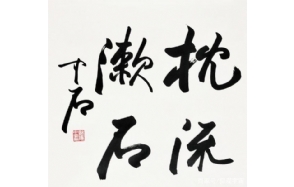 枕流
漱石
中石